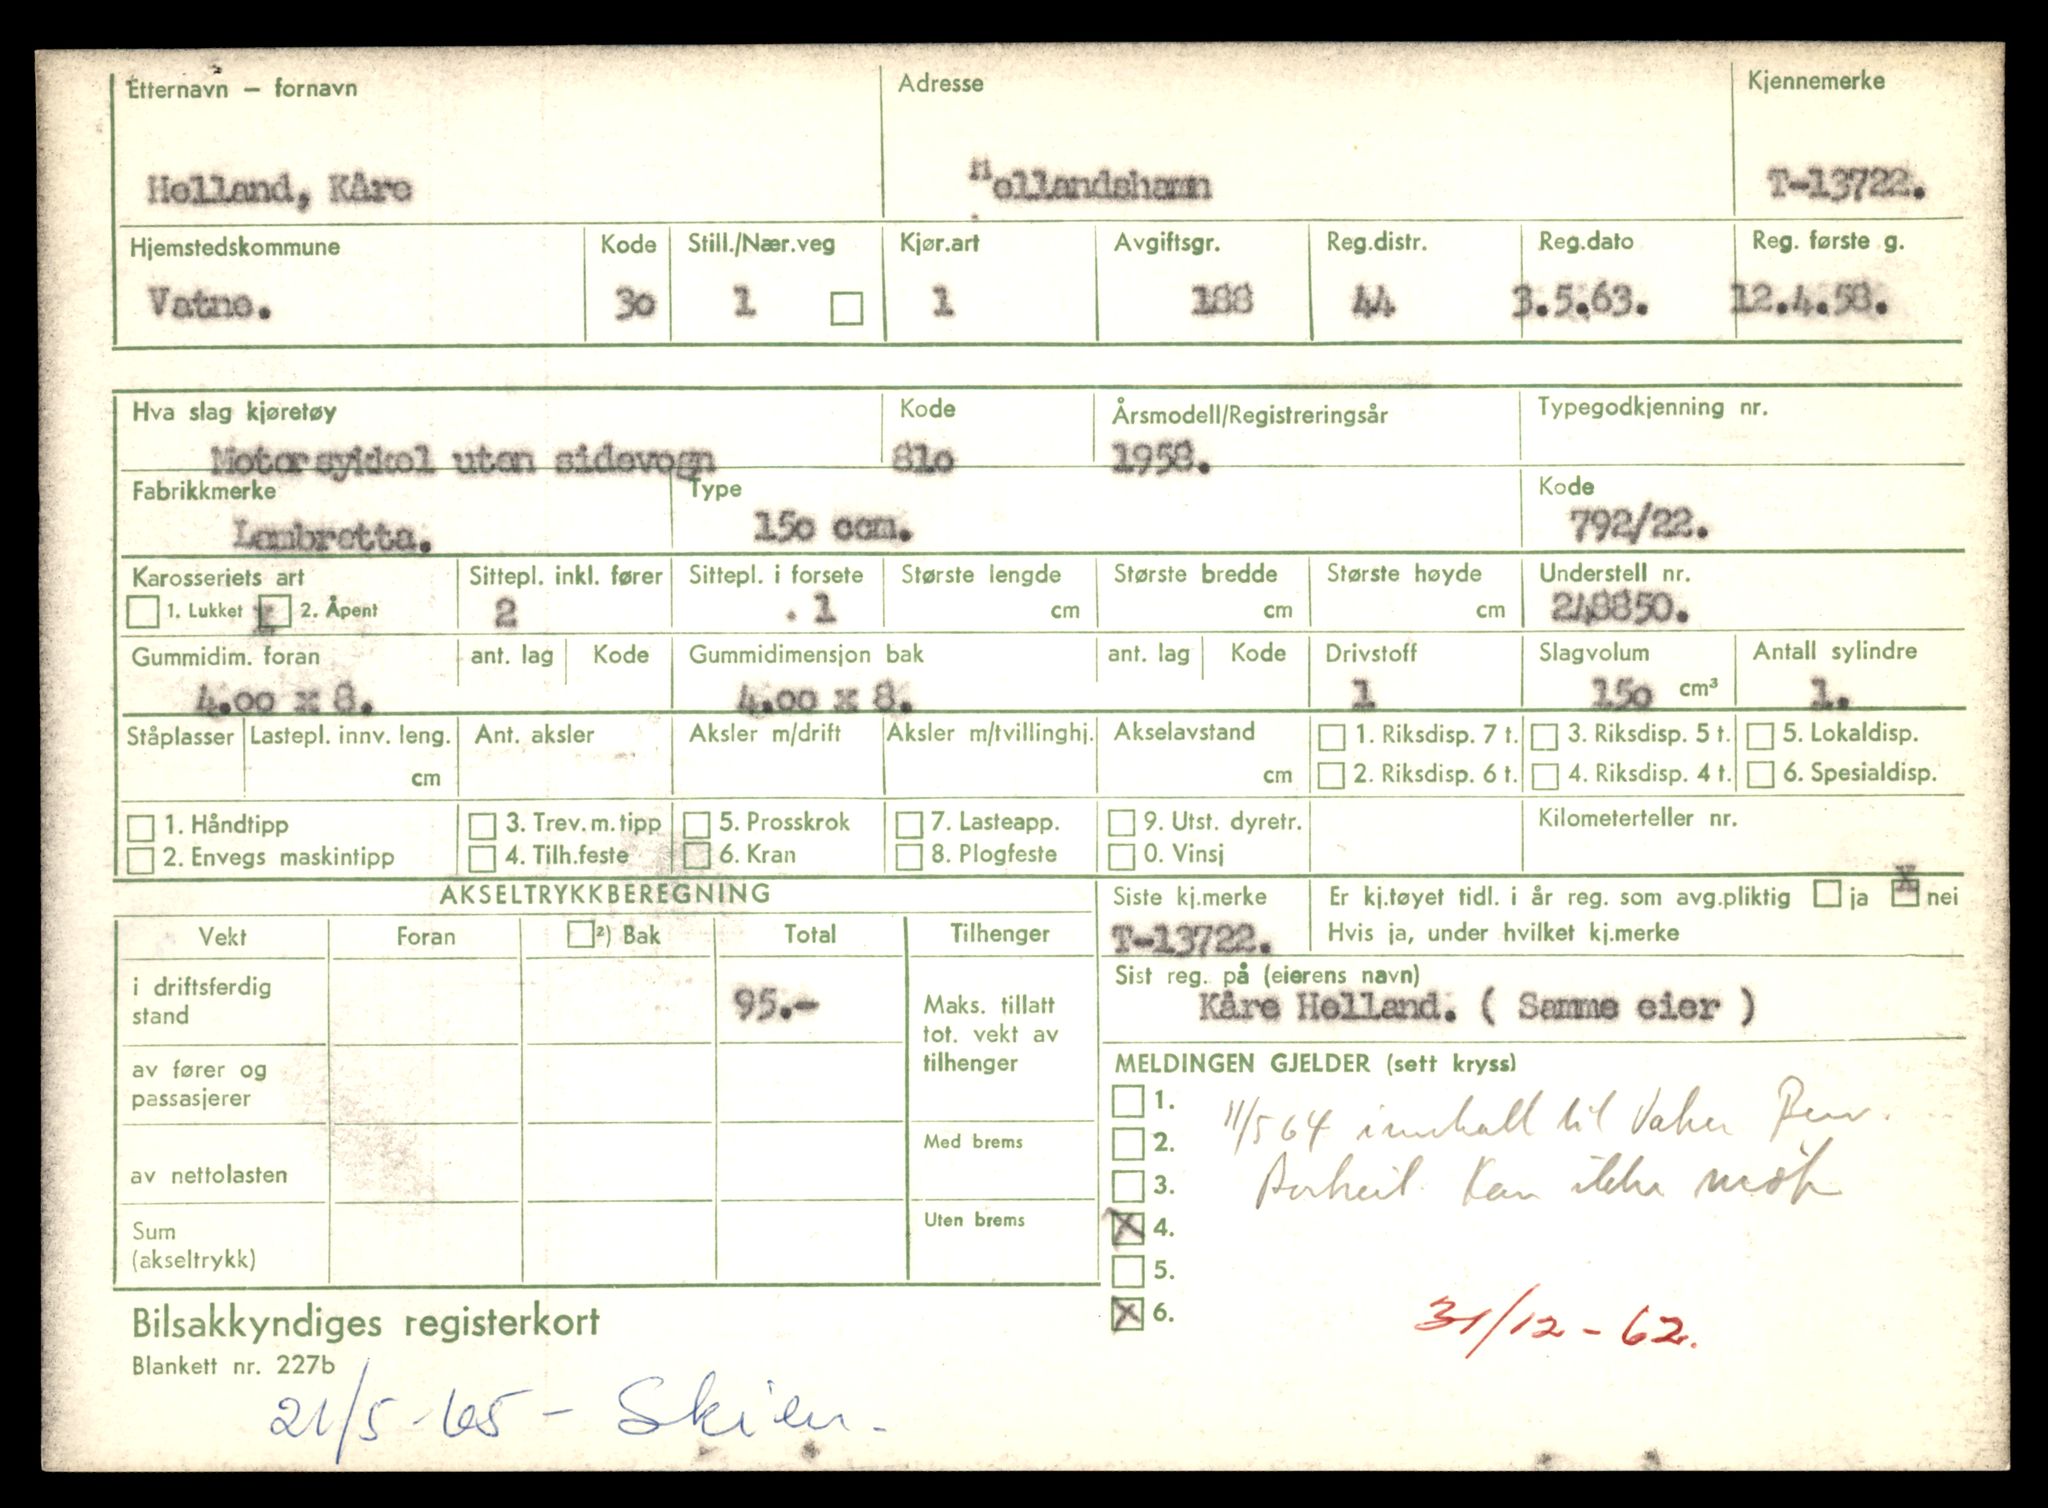 Etternavn – fornavn Adresse Kjennemerke
Helland, Kåre Hellandshamn T-13722.
Hjemstedskommune Kode Still./Nær.veg Kjør.art Avgiftsgr. Reg.distr. Reg.dato Reg. første g.
Vatne. 30 1 1 188 44 3.5.63. 12.4.58.
Hva slag kjøretøy Kode Årsmodell/Registreringsår Typegodkjenning nr.
Motorsykkel uten sidevogn 810 1958.
Fabrikkmerke Type Kode
Lambretta. 150 ccm. 792/22.
Karosseriets art Sittepl. inkl. fører Sittepl. i forsete Største lengde Største bredde Største høyde Understell nr.
1. Lukket x 2. Åpent 2 . 1 cm cm cm 248850.
Gummidim. foran ant. lag Kode Gummidimensjon bak ant. lag Kode Drivstoff Slagvolum Antall sylindre
4.00 x 8. 4.00 x 8. 1 150 cm³ 1.
Ståplasser Lastepl. innv. leng. Ant. aksler Aksler m/drift Aksler m/tvillinghj. Akselavstand 1. Riksdisp. 7 t. 3. Riksdisp. 5 t. 5. Lokaldisp.
cm cm 2. Riksdisp. 6 t. 4. Riksdisp. 4 t. 6. Spesialdisp.
1. Håndtipp 3. Trev. m. tipp 5. Prosskrok 7. Lasteapp. 9. Utst. dyretr. Kilometerteller nr.
2. Envegs maskintipp 4. Tilh.feste 6. Kran 8. Plogfeste 0. Vinsj
AKSELTRYKKBEREGNING Siste kj.merke Er kj.tøyet tidl. i år reg. som avg.pliktig ja x nei
Vekt Foran ²) Bak Total Tilhenger T-13722. Hvis ja, under hvilket kj.merke
i driftsferdig stand 95.- Maks. tillatt tot. vekt av tilhenger
Sist reg. på (eierens navn)
Kåre Helland. ( Samme eier )
av fører og passasjerer
MELDINGEN GJELDER (sett kryss)
1. 11/5 64 til
2. Med brems
av nettolasten
3. Kan ikke
x 4.
Sum (akseltrykk) Uten brems
5.
x 6. 31/12-62.
Bilsakkyndiges registerkort
Blankett nr. 227b
21/5-65 - Skien.